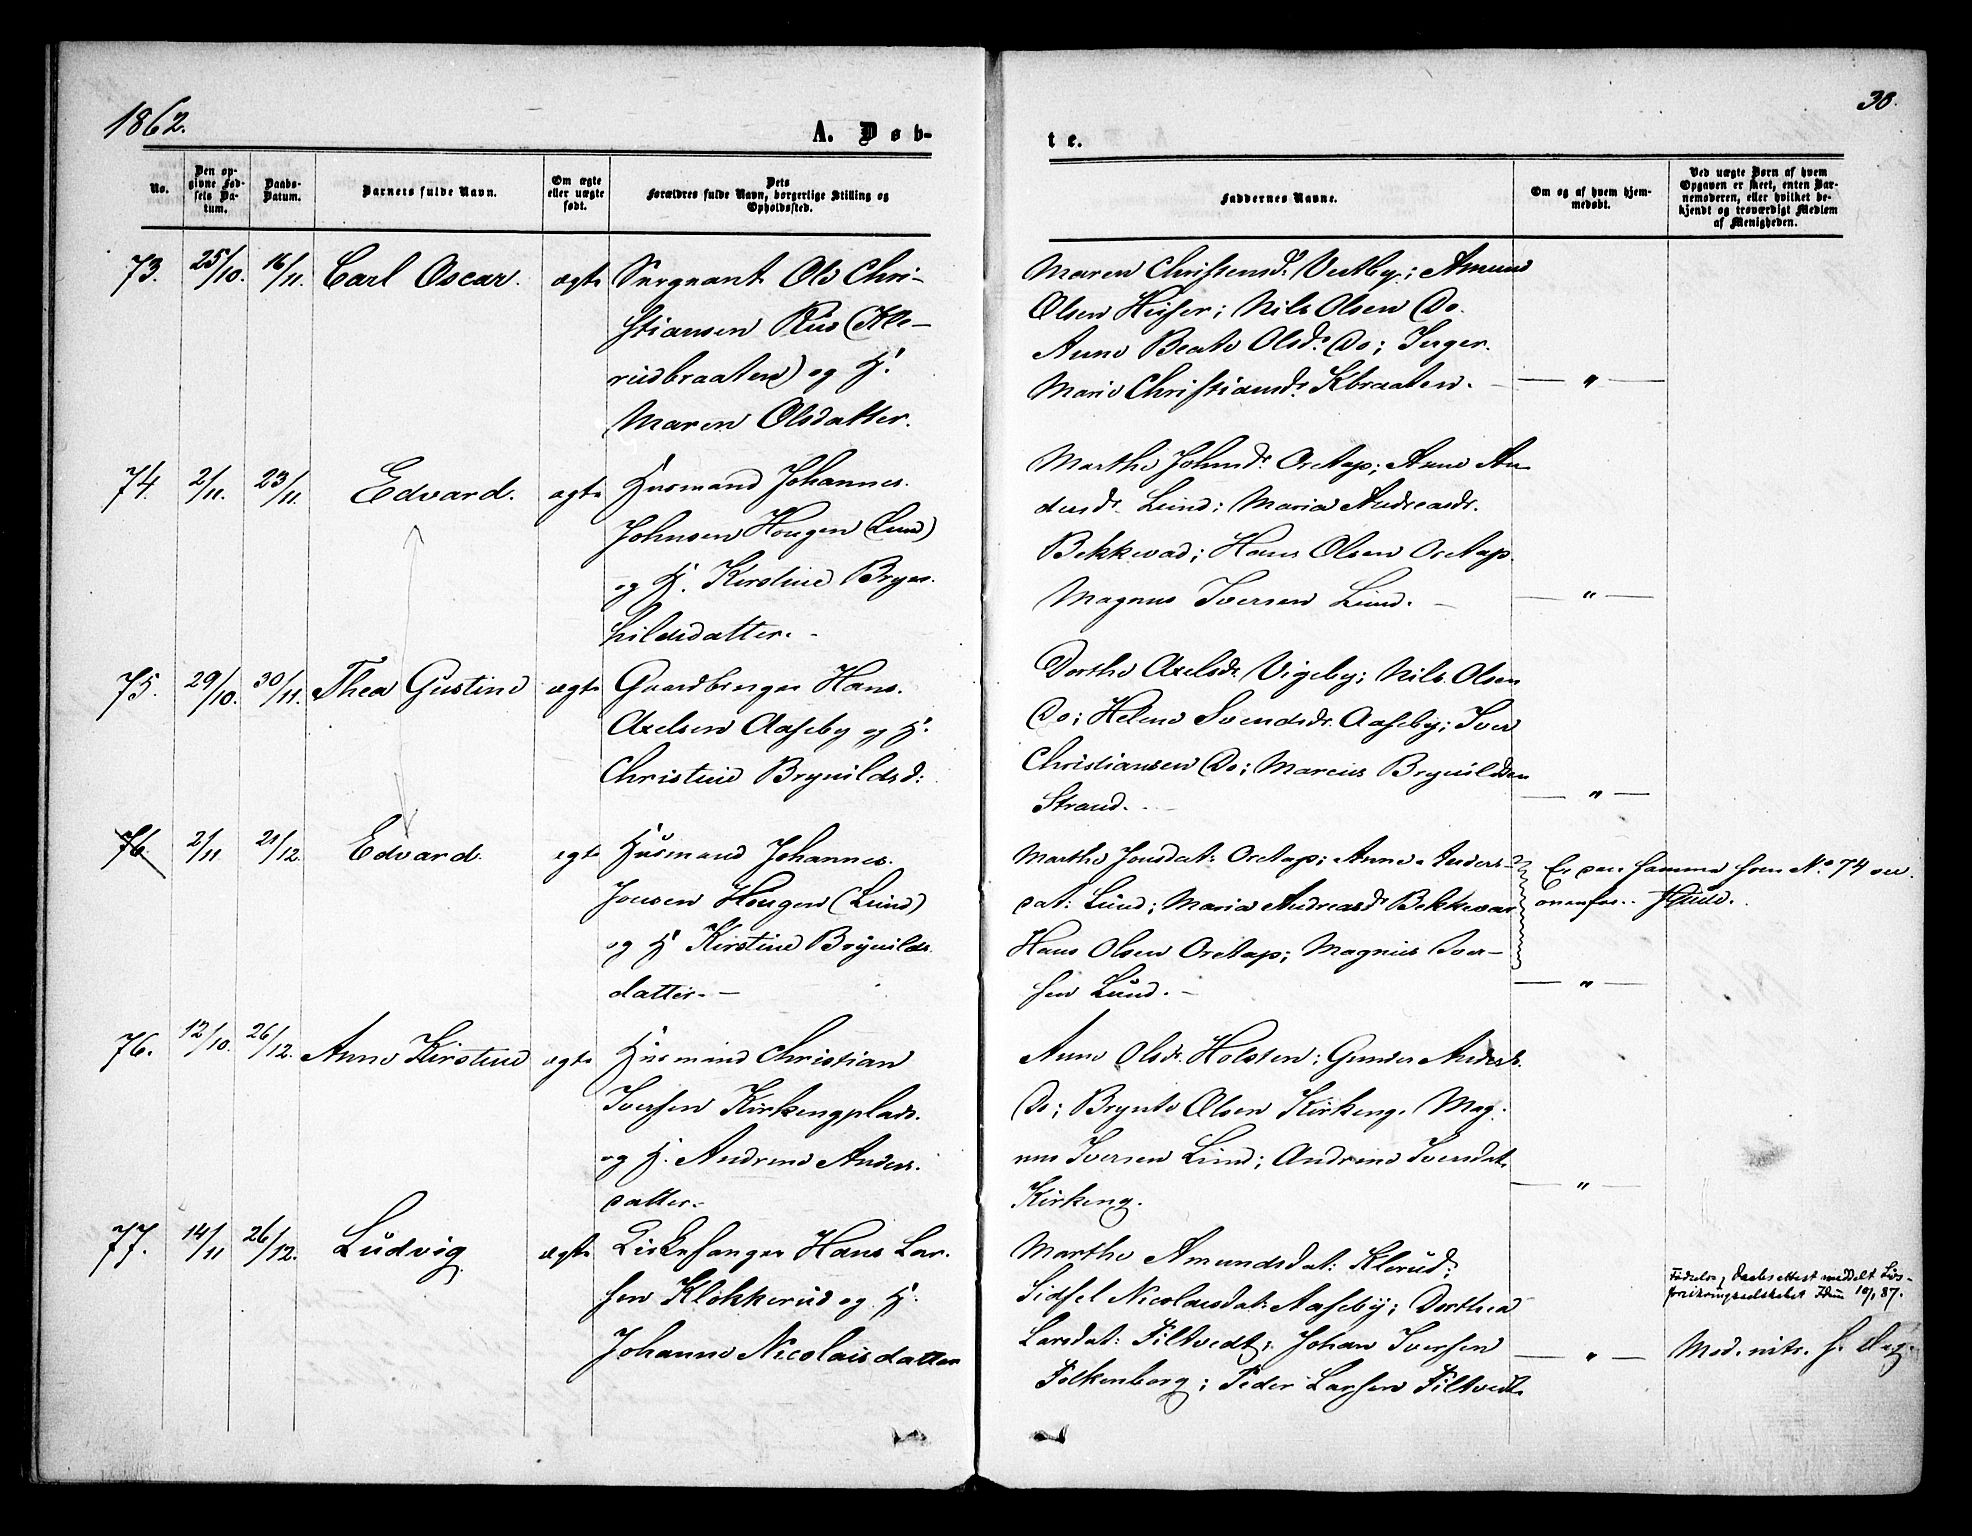 1862.
A. Døb-
te.
38.
No.
Den op-
givne Fød-
sels Da-
tum.
Daabs-
Datum.
Barnets fulde Navn.
Om ægte
eller uægte
født.
Dets
Forældres fulde Navn, borgerlige Stilling og
Opholdssted.
Faddernes Navne.
Om og af hvem hjem-
medøbt.
Ved uægte Børn af hvem
Opgaven er skeet, enten Bar-
nemoderen, eller hvilket be-
kjendt og troværdigt Medlem
af Menigheden.
73. 25/10. 16/11. Carl Oscar. ægte Sergeant Ole Chri-
stiansen Rus (Kle-
rudbraaten) og H.
Maren Olsdatter.
Maren Christensd. Vestby; Amund
Olsen Huser; Nils Olsen Do.
Anne Beate Olsd. Do; Inger
Marie Christiansd. Kbraaten.
— " —
74. 2/11. 23/11. Edvard. ægte Husmand Johannes
Johnsen Hougen (Lund)
og H. Kirstine Bryn-
hildsdatter.
Marthe Johnsd. Oretap; Anne An
dersd. Lund; Maria Andreasdr.
Bekkevad; Hans Olsen Oretap.
Magnus Iversen Lund.
— " —
75. 29/10. 30/11. Thea Gustine ægte Gaardbruger Hans
Axelsen Aaseby og H.
Christine Brynildsd:
Dorthe Axelsdr. Vigeby; Nils Olsen
Do; Helene Svendsdr. Aaseby; Iver
Christiansen Do; Marcus Brynildsen
Strand.
— " —
76. 2/11 21/12. Edvard. egte Husmand Johannes
Jonsen Hougen (Lund)
og H Kirstine Brynilds
datter.
Marthe Jonsdat: Oretap; Anne Anders-
dat: Lund; Maria Andreasd. Bekkevar
Hans Olsen Oretap; Magnus Iver-
sen Lund.
Er den samme som No. 74 see
ovenfor.
— " —
76. 12/10. 26/12. Anne Kirstine ægte Husmand Christian
Iversen Kirkengplads.
og H. Andrine Anders
datter.
Anne Olsdr. Holsten; Gunder Andersdr.
Do; Brynte Olsen Kirkeng. Mag-
nus Iversen Lund; Andrine Iversdat.
Kirkeng.
— " —
77. 14/11 26/12. Ludvig ægte Hans Lar-
sen Klokkerud og H.
Johanne Nicolaisdatter
Marthe Amundsdat: Klerud;
Sidsel Nicolaisdat: Aaseby; Dorthea
Larsdat: Filtvedt; Johan Iversen
Folkenborg; Peder Larsen Filtvedt
— " —
Fødsels, Daabsattest meddelt Livs-
forsikringsselskabet Idun 10/1 87.